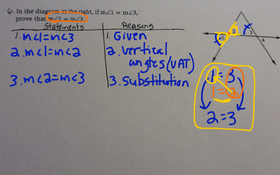 6. In the diagram at the right, if m∠1 = m∠3,
prove that m∠2 = m∠3.
Statements Reasons
1. m∠1 = m∠3 1. Given
2. m∠1 = m∠2 2. Vertical
angles (VAT)
3. m∠2 = m∠3 3. Substitution
1 = 3
1 = 2
2 = 3